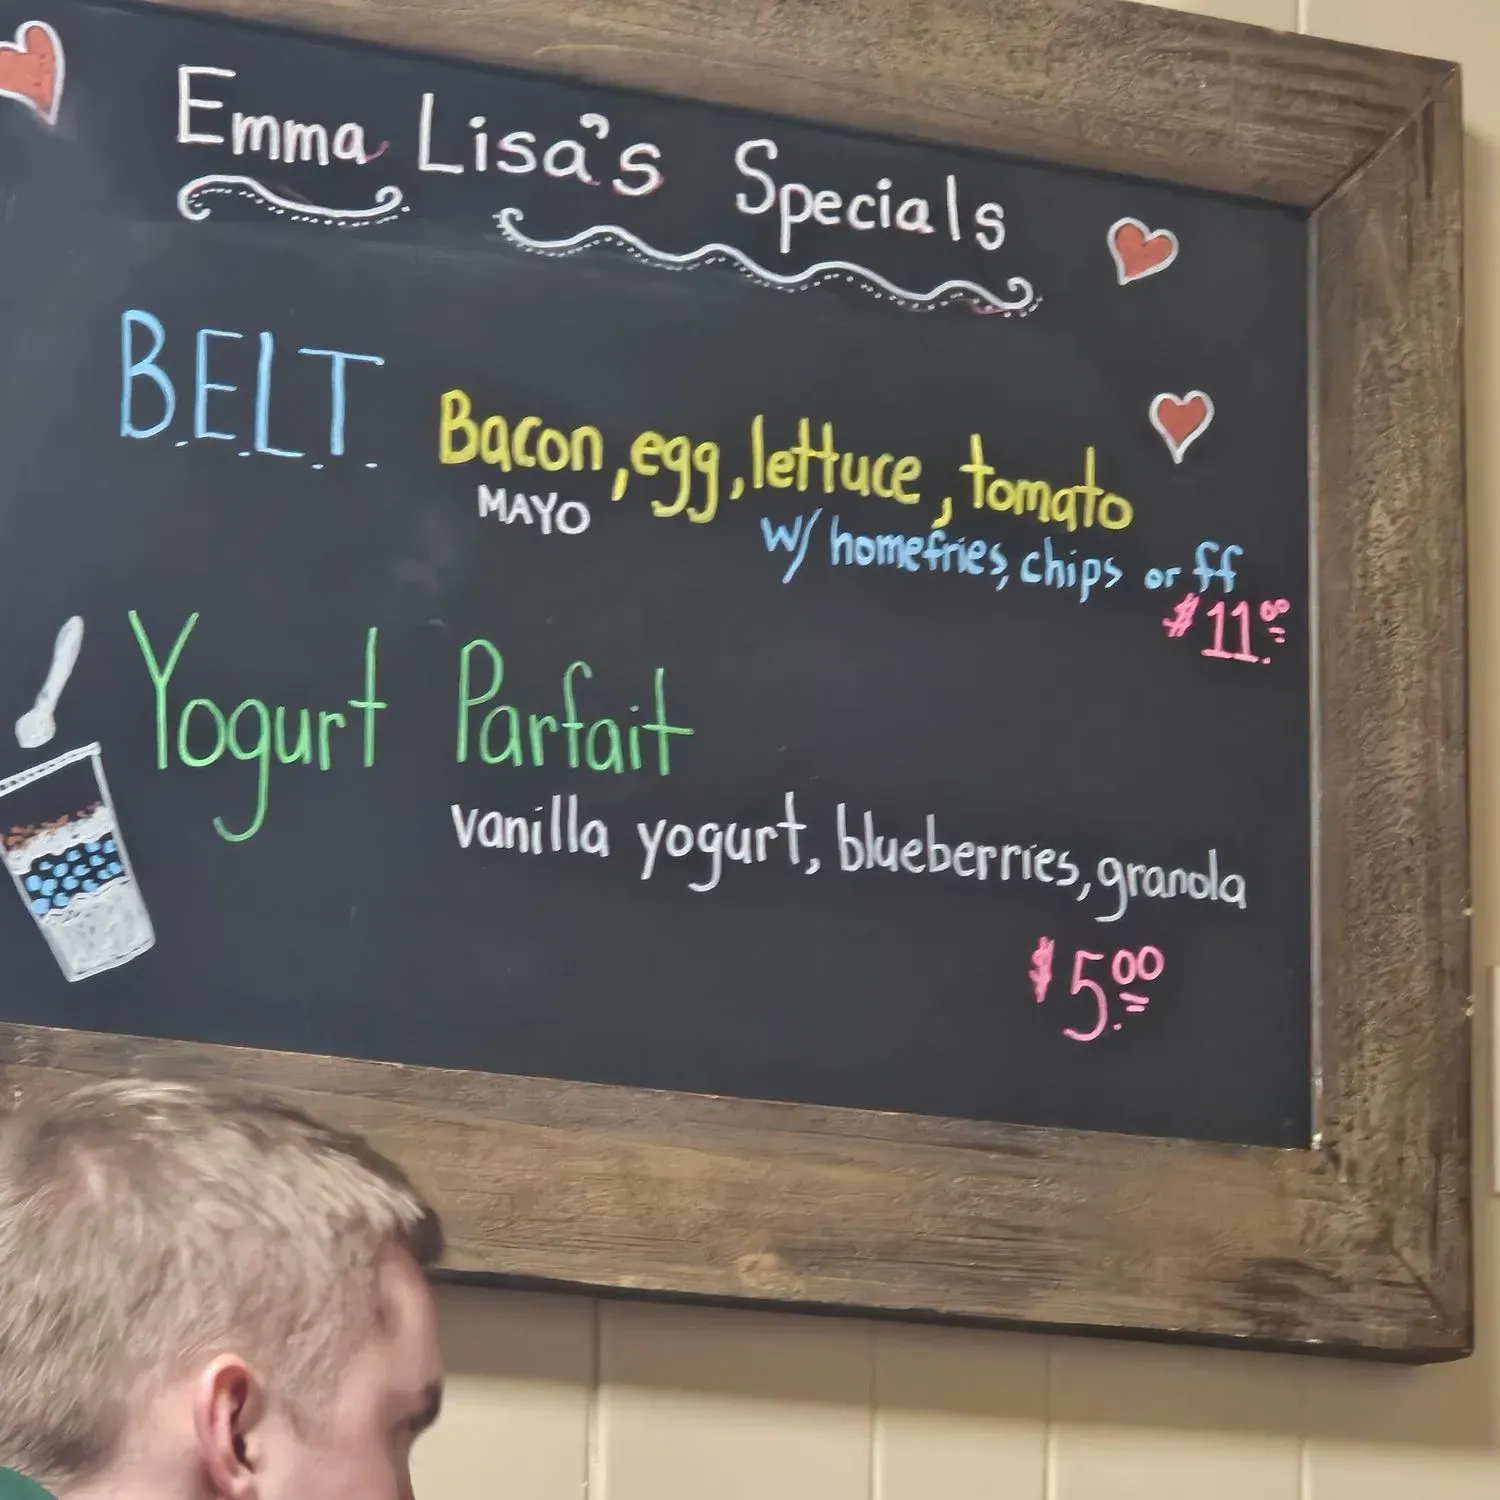 Emma Lisa's Specials
B.E.L.T. Bacon, egg, lettuce, tomato
MAYO
w/ homefries, chips or ff
$11.00
Yogurt Parfait
vanilla yogurt, blueberries, granola
$5.00